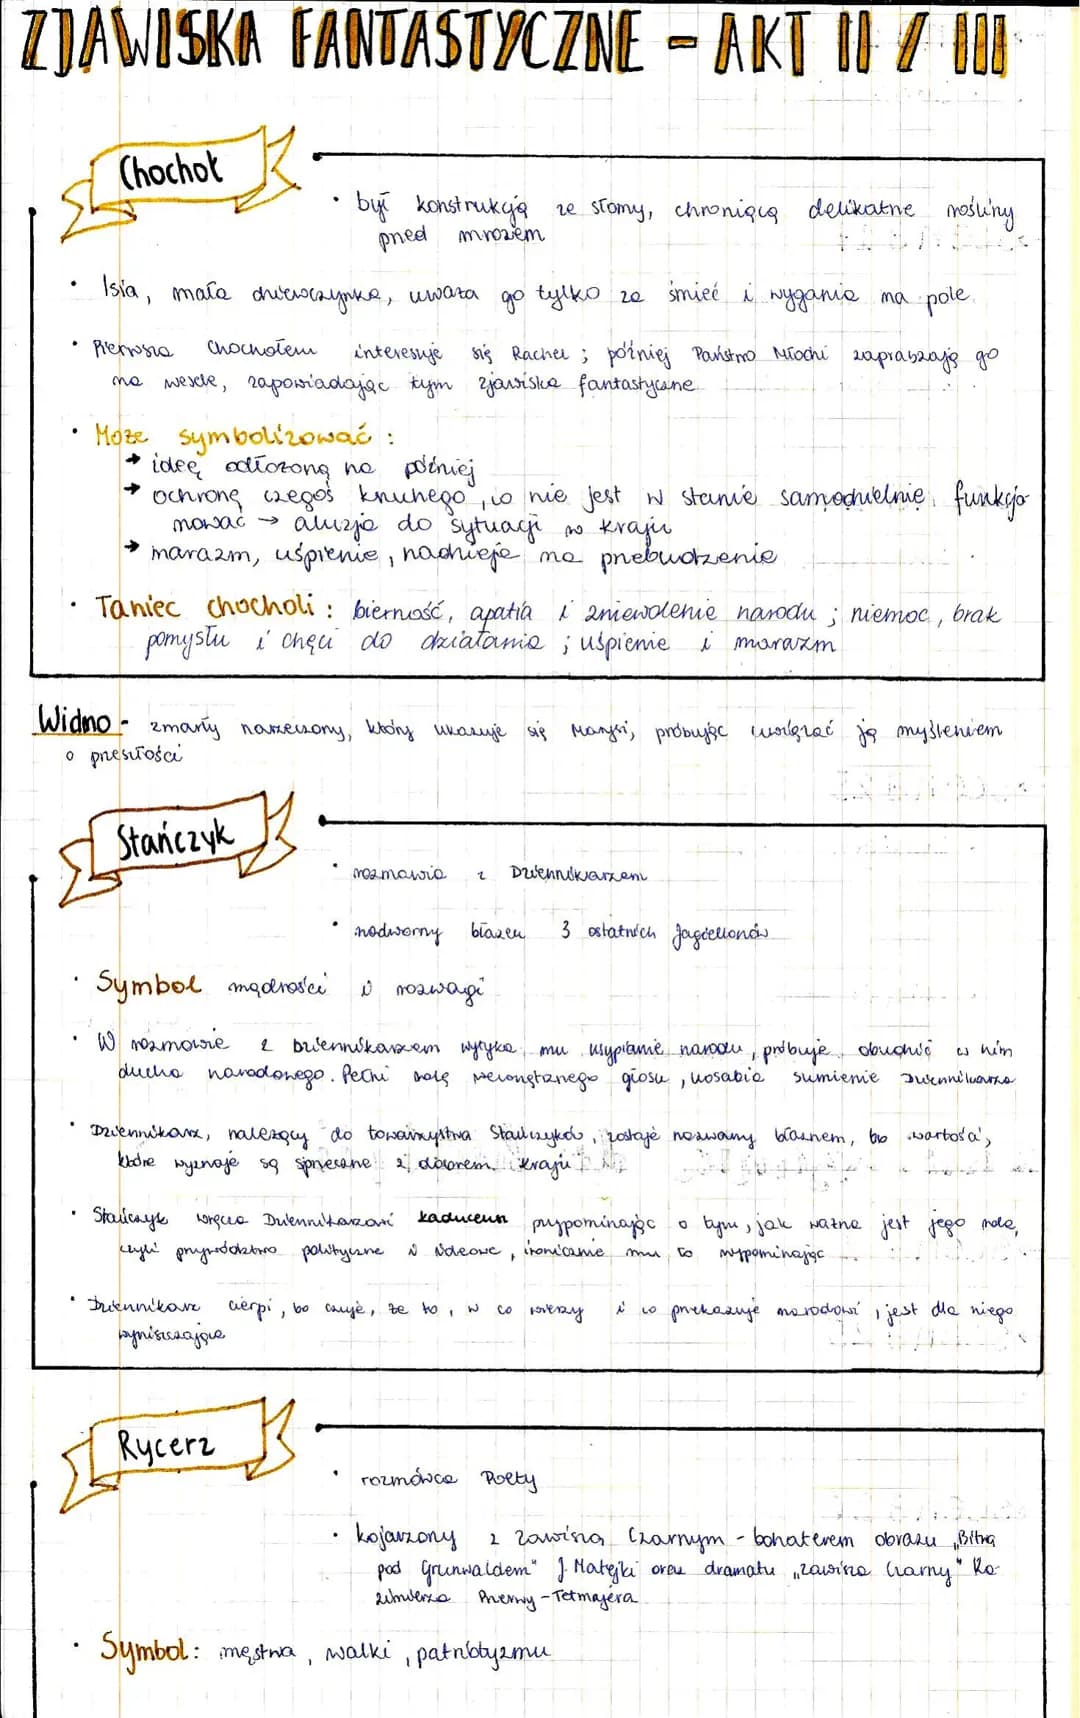 ZJAWISKA FANTASTYCZNE - AKT II / III
Chochoł
• był konstrukcją ze słomy, chroniącą delikatne rośliny
przed mrozem
• Isia, mała dziewczynka, uważa go tylko za śmieć i wygania na pole
• Pierwsza Chochołem interesuje się Rachel ; później Państwo Młodzi zapraszają go
na wesele, zapowiadając tym zjawiska fantastyczne
• Może symbolizować :
→ ideę odłożoną na później
→ ochronę czegoś kruchego, co nie jest w stanie samodzielnie funkcjo-
nować → aluzja do sytuacji w kraju
→ marazm, uśpienie, nadzieja na przebudzenie
• Taniec chocholi : bierność, apatia i zniewolenie narodu ; niemoc, brak
pomysłu i chęci do działania ; uśpienie i marazm
Widmo - zmarły narzeczony, który ukazuje się Marysi, próbując uwiązać ją myśleniem
o przeszłości
Stańczyk
• rozmawia z Dziennikarzem
• nadworny błazen 3 ostatnich Jagiellonów
• Symbol mądrości i rozwagi
• W rozmowie z Dziennikarzem wytyka mu usypianie narodu, próbuje obudzić w nim
ducha narodowego. Pełni rolę wewnętrznego głosu, uosabia sumienie Dziennikarza
• Dziennikarz, należący do towarzystwa Stańczyków, zostaje nazwany błaznem, bo wartości,
które wyznaje są sprzeczne z dobrem kraju
• Stańczyk wręcza Dziennikarzowi kaduceusz przypominając o tym, jak ważna jest jego rola,
czyli przywództwo polityczne i ideowe, ironicznie mu to wypominając
• Dziennikarz cierpi, bo czuje, że to, w co wierzy i co przekazuje narodowi, jest dla niego
wyniszczające
Rycerz
• rozmówca Poety
• kojarzony z Zawiszą Czarnym - bohaterem obrazu „Bitwa
pod Grunwaldem" J. Matejki oraz dramatu „Zawisza Czarny" Ka-
zimierza Przerwy-Tetmajera
• Symbol: męstwa, walki, patriotyzmu